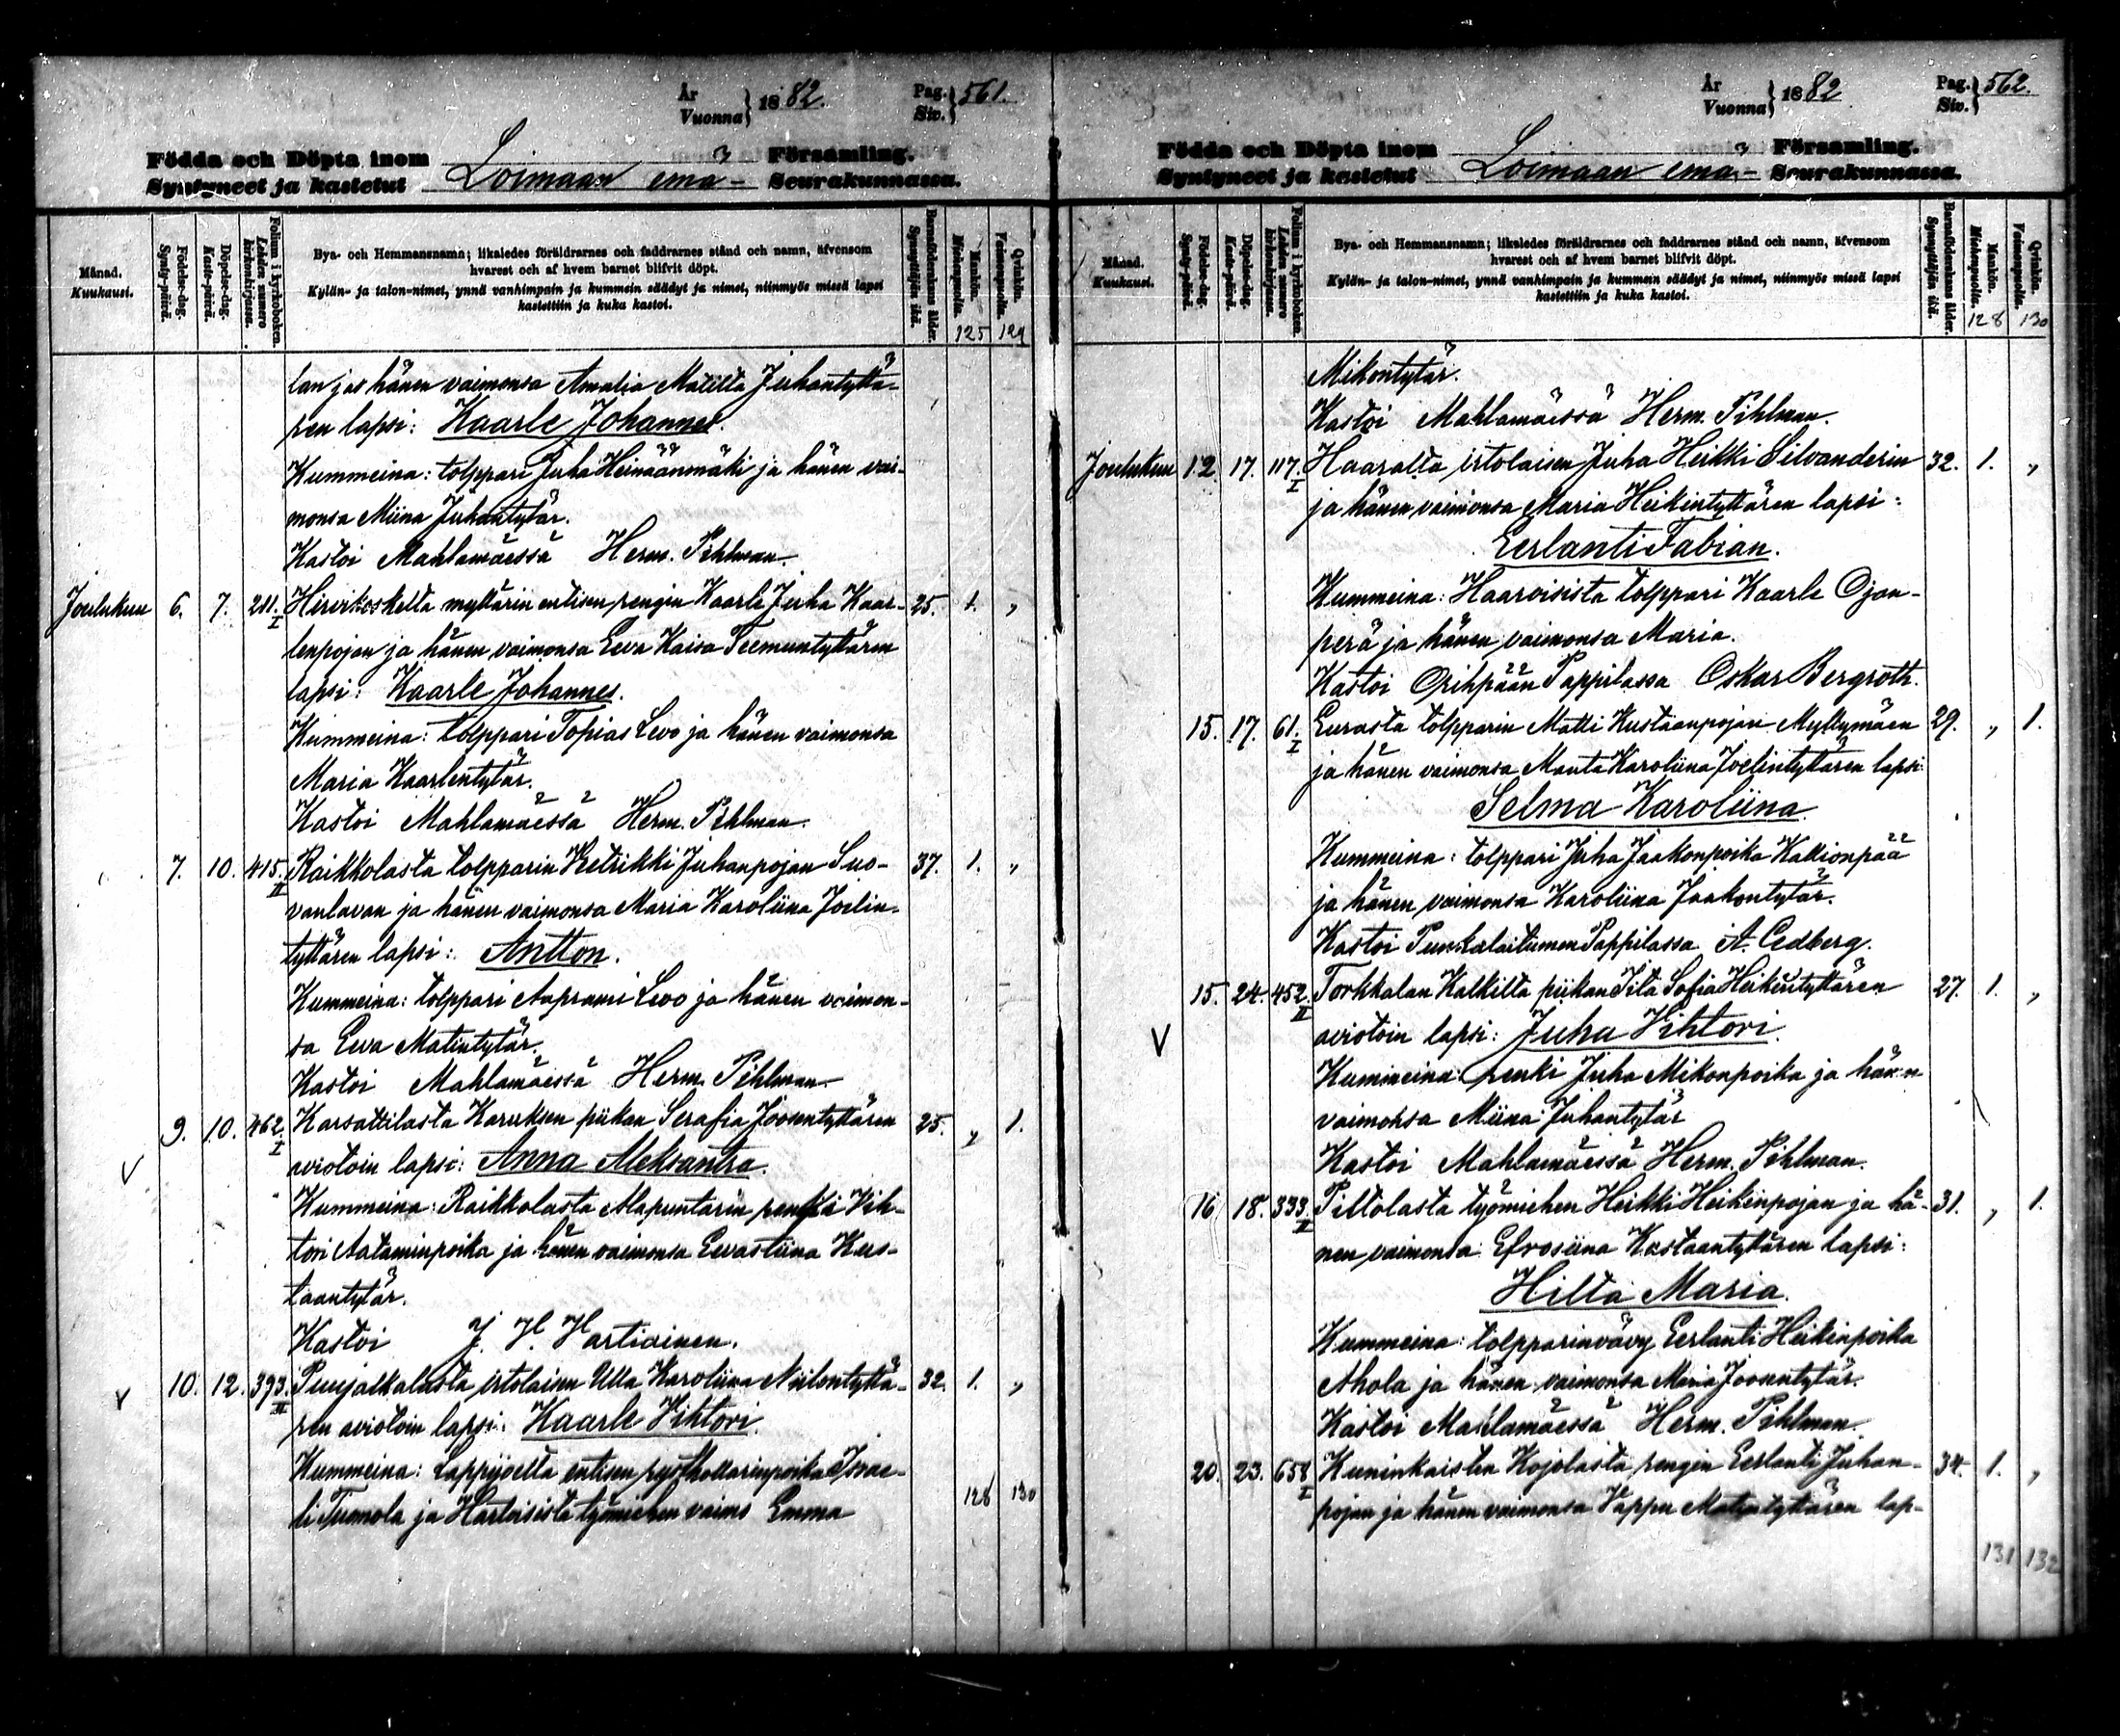 År
Vuonna } 1882.
Pag.
Siv. } 561.
Födda och Döpta inom
Syntyneet ja kastetut
Loimaan emä-
Församling.
Seurakunnassa.
Månad.
Kuukausi.
Födelse-dag.
Synty-päivä.
Döpelse-dag.
Kaste-päivä.
Folium i kyrkoboken.
Lehden numero kirkonkirjassa.
Bya- och Hemmansnamn; likaledes föräldrarnes och faddrarnes stånd och namn, äfvensom
hvarest och af hvem barnet blifvit döpt.
Kylän- ja talon-nimet, ynnä vanhimpain ja kummein säädyt ja nimet, niinmyös missä lapsi
kastettiin ja kuka kastoi.
Barnaföderskans ålder.
Synnyttäjän ikä.
Mankön.
Miehenpuolia.
Qvinkön.
Vaimonpuolia.
125 129
lan ja hänen vaimonsa Amalia Matilta Juhantyttä-
ren lapsi: Kaarle Johannes.
Kummeina: tolppari Juha Heinäänmäki ja hänen vai-
monsa Miina Juhantytär.
Kastoi Mahlamäessä Herm. Pihlman.
Joulukuu 6. 7. 211. I Hirvikoskelta myllärin entisen rengin Kaarle Juha Kaar- 25. 1. „
lenpojan ja hänen vaimonsa Eeva Kaisa Teemuntyttären
lapsi: Kaarle Johannes.
Kummeina: tolppari Topias Levo ja hänen vaimonsa
Maria Kaarlentytär.
Kastoi Mahlamäessä Herm. Pihlman.
7. 10. 415. II Raikkolasta tolpparin Retrikki Juhanpojan Suo- 37. 1. „
vanlavan ja hänen vaimonsa Maria Karoliina Joelin-
tyttären lapsi: Antton.
Kummeina: tolppari Aaprami Levo ja hänen vaimon-
sa Eeva Matintytär.
Kastoi Mahlamäessä Herm. Pihlman.
9. 10. 462. I Karsattilasta Karuksen piikan Serafia Joosentyttären 25. „ 1.
aviotoin lapsi: Anna Aleksantra.
Kummeina: Raikkolasta Alapuntarin renki Vih-
tori Aataminpoika ja hänen vaimonsa Eevastiina Kus-
taantytär.
Kastoi J. H. Hartiainen.
10. 12. 393. II Puujalkalasta irtolaisen Ulla Karoliina Niilontyttä- 32. 1. „
ren aviotoin lapsi: Kaarle Vihtori.
Kummeina: Lappijoelta entisen Israe-
li Tuomola ja työmiehen vaimo Emma
128 130
År
Vuonna } 1882
Pag.
Siv. } 562.
Födda och Döpta inom
Syntyneet ja kastetut
Loimaan emä-
Församling.
Seurakunnassa.
Månad.
Kuukausi.
Födelse-dag.
Synty-päivä.
Döpelse-dag.
Kaste-päivä.
Folium i kyrkoboken.
Lehden numero kirkonkirjassa.
Bya- och Hemmansnamn; likaledes föräldrarnes och faddrarnes stånd och namn, äfvensom
hvarest och af hvem barnet blifvit döpt.
Kylän- ja talon-nimet, ynnä vanhimpain ja kummein säädyt ja nimet, niinmyös missä lapsi
kastettiin ja kuka kastoi.
Barnaföderskans ålder.
Synnyttäjän ikä.
Mankön.
Miehenpuolia.
Qvinkön.
Vaimonpuolia.
128 130
Mikontytär.
Kastoi Mahlamäessä Herm. Pihlman.
Joulukuu 12. 17. 117. I Haaralta irtolaisen Juha Heikki Silvanderin 32. 1. „
ja hänen vaimonsa Maria Heikintyttären lapsi:
Eerlanti Fabian.
Kummeina: Haaroisista tolppari Kaarle Ojan-
perä ja hänen vaimonsa Maria.
Kastoi Oripään Pappilassa Oskar Bergroth.
15. 17. 61. I Eurasta tolpparin Matti Kustaanpojan Myllymäen 29. „ 1.
ja hänen vaimonsa Manta Karoliina Joelintyttären lapsi:
Selma Karoliina.
Kummeina: tolppari Juha Jaakonpoika Kallionpää
ja hänen vaimonsa Karoliina Jaakontytär.
Kastoi Punkalaitumen Pappilassa A. Cedberg.
15. 24. 452. II Torkkalan Kalkilta piikan Iita Sofia Heikintyttären 27. 1. „
aviotoin lapsi: Juha Vihtori.
Kummeina: renki Juha Mikonpoika ja hänen
vaimonsa Miina Juhantytär
Kastoi Mahlamäessä Herm. Pihlman.
16 18. 333. II Piltolasta työmiehen Heikki Heikinpojan ja hä- 31. „ 1.
nen vaimonsa Efrosiina Kustaantyttären lapsi:
Hilta Maria.
Kummeina: tolpparinvävy Eerlanti Heikinpoika
Ahola ja hänen vaimonsa Maria Joosentytär.
Kastoi Mahlamäessä Herm. Pihlman.
20. 23. 658 I Kuninkaisten Kojolasta rengin Eerlanti Juhan- 34. 1. „
pojan ja hänen vaimonsa Vappu Matintyttären lap-
131 132